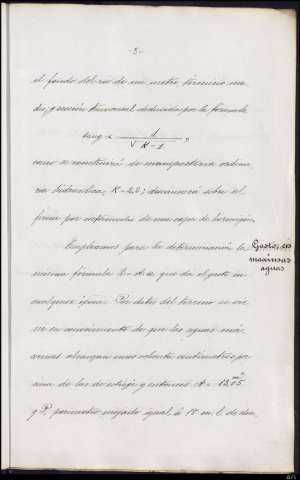 -8-
el fondo del río de un metro, término me-
dio, y sección trapecial deducida por la fórmula
tang α = 1 / √K-1 ,
como se construirá de mampostería ordina-
ria hidráulica, K=2,0; descansará sobre el
firme por intermedio de una capa de hormigón.
Empleamos para la determinación la
misma fórmula que da el gasto en
cualquier época. Por datos del terreno se vie-
ne en conocimiento de que las aguas máx-
imas alcanzan unos centímetros por
cima de las de estiaje y entonces A = 13,05
y P, perímetro mojado igual á 18 m. l. de don-
Gasto, en
maximas
aguas